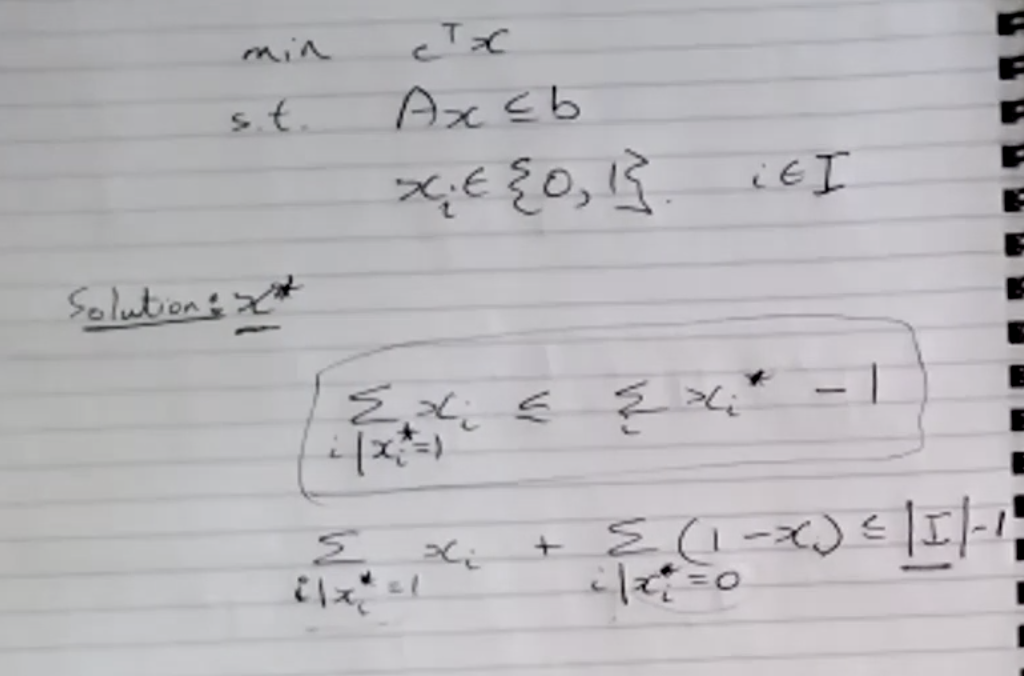 min cᵀx
s.t. Ax ≤ b
xᵢ ∈ {0, 1}. i ∈ I
Solution: x*
∑_{i|xᵢ*=1} xᵢ ≤ ∑_i xᵢ* - 1
∑_{i|xᵢ*=1} xᵢ + ∑_{i|xᵢ*=0} (1 - xᵢ) ≤ |I| - 1